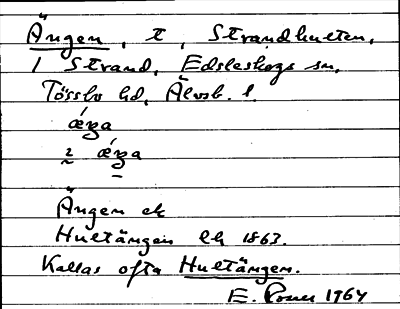 Ängen, t, Strandhulten,
1 Strand, Edsleskogs sn,
Tössbo hd, Älvsb. l.
ǽŋa
2 ǽŋa
Ängen ek
Hultängen lk 1863.
Kallas ofta Hultängen.
E. 1964